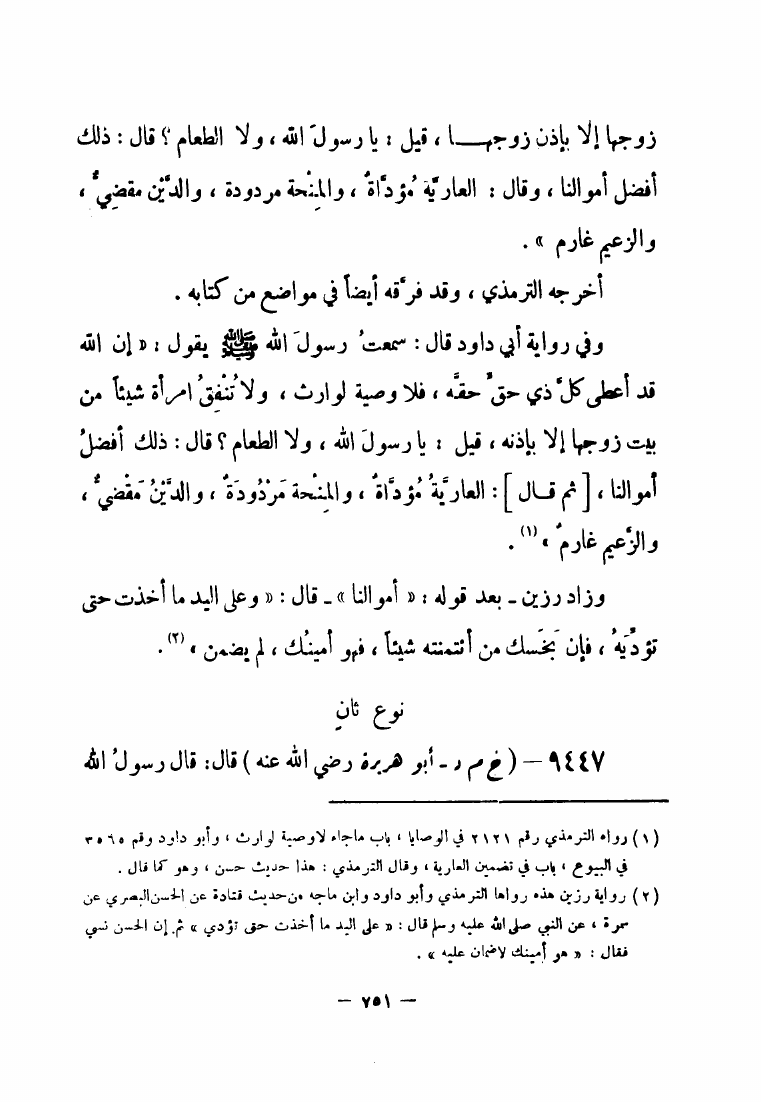 زوجها إلا بإذن زوجهـــا ، قيل : يا رسولَ الله ، ولا الطعام ؟ قال : ذلك
أفضل أموالنا ، وقال : العاريَّةُ مُؤدَّاةٌ ، والمِنْحة مردودة ، والدَّيْن مقضِيٌّ ،
والزعيم غارم » .
أخرجه الترمذي ، وقد فرَّقه أيضاً في مواضع من كتابه .
وفي رواية أبي داود قال : سمعتُ رسولَ الله ﷺ يقول : « إن الله
قد أعطى كلَّ ذي حقٍّ حقَّه ، فلا وصية لوارث ، ولا تُنْفِقُ امرأة شيئاً من
بيت زوجها إلا بإذنه ، قيل : يا رسولَ الله ، ولا الطعام ؟ قال : ذلك أفضلُ
أموالنا ، [ ثم قـال ] : العاريَّةُ مُؤدَّاةٌ ، والمِنْحة مَرْدُودَةٌ ، والدَّيْنُ مَقْضيٌّ ،
والزَّعيم غارمٌ » (١) .
وزاد رزين ـ بعد قوله : « أموالنا » ـ قال : « وعلى اليد ما أخذت حتى
تؤدِّيَهُ ، فإن بَخَسك من أئتمنته شيئاً ، فهو أمينُك ، لم يضمن » (٢) .
نوع ثانٍ
٩٤٤٧ – ( خ م د ـ أبو هريرة رضي الله عنه ) قال : قال رسولُ الله
(١) رواه الترمذي رقم ٢١٢١ في الوصايا ، باب ماجاء لاوصية لوارث ، وأبو داود رقم ٣٥٦٥
في البيوع ، باب في تضمين العارية ، وقال الترمذي : هذا حديث حسن ، وهو كما قال .
(٢) رواية رزين هذه رواها الترمذي وأبو داود وابن ماجه من حديث قتادة عن الحسن البصري عن
سمرة ، عن النبي صلى الله عليه وسلم قال : « على اليد ما أخذت حتى تؤدي » ثم إن الحسن نسي
فقال : « هو أمينك لاضمان عليه » .
– ٧٥١ –